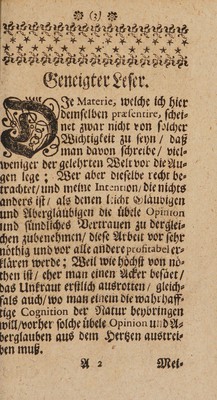 (3)
Geneigter Leser.
DJe Materie, welche ich hier
demselben præsentire, schei-
net zwar nicht von solcher
Wichtigkeit zu seyn / daß
man davon schreibe / viel-
weniger der gelehrten Welt vor die Au-
gen lege ; Wer aber dieselbe recht be-
trachtet / und meine Intention, die nichts
anders ist / als denen licht Gläubigen
und Abergläubigen die übele Opinion
und sündliches Vertrauen zu derglei-
chen zubenehmen / diese Arbeit vor sehr
nöthig und vor alle andere profitabel er-
klären werde ; Weil wie höchst von nö-
then ist / eher man einen Acker besäet /
das Unkraut erstlich ausrotten / gleich-
fals auch / wo man einem die wahrhaff-
tige Cognition der Natur beybringen
will / vorher solche übele Opinion und A-
berglauben aus dem Hertzen austrei-
ben muß.
A 2 Mei-